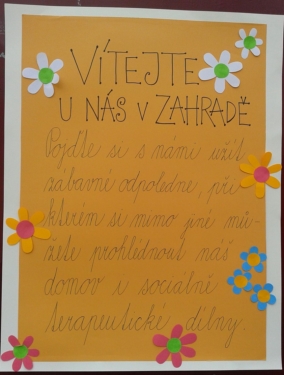 VÍTEJTE
U NÁS V ZAHRADĚ
Pojďte si s námi užít
zábavné odpoledne, při
kterém si mimo jiné mů-
žete prohlédnout náš
domov i sociálně
terapeutické dílny.